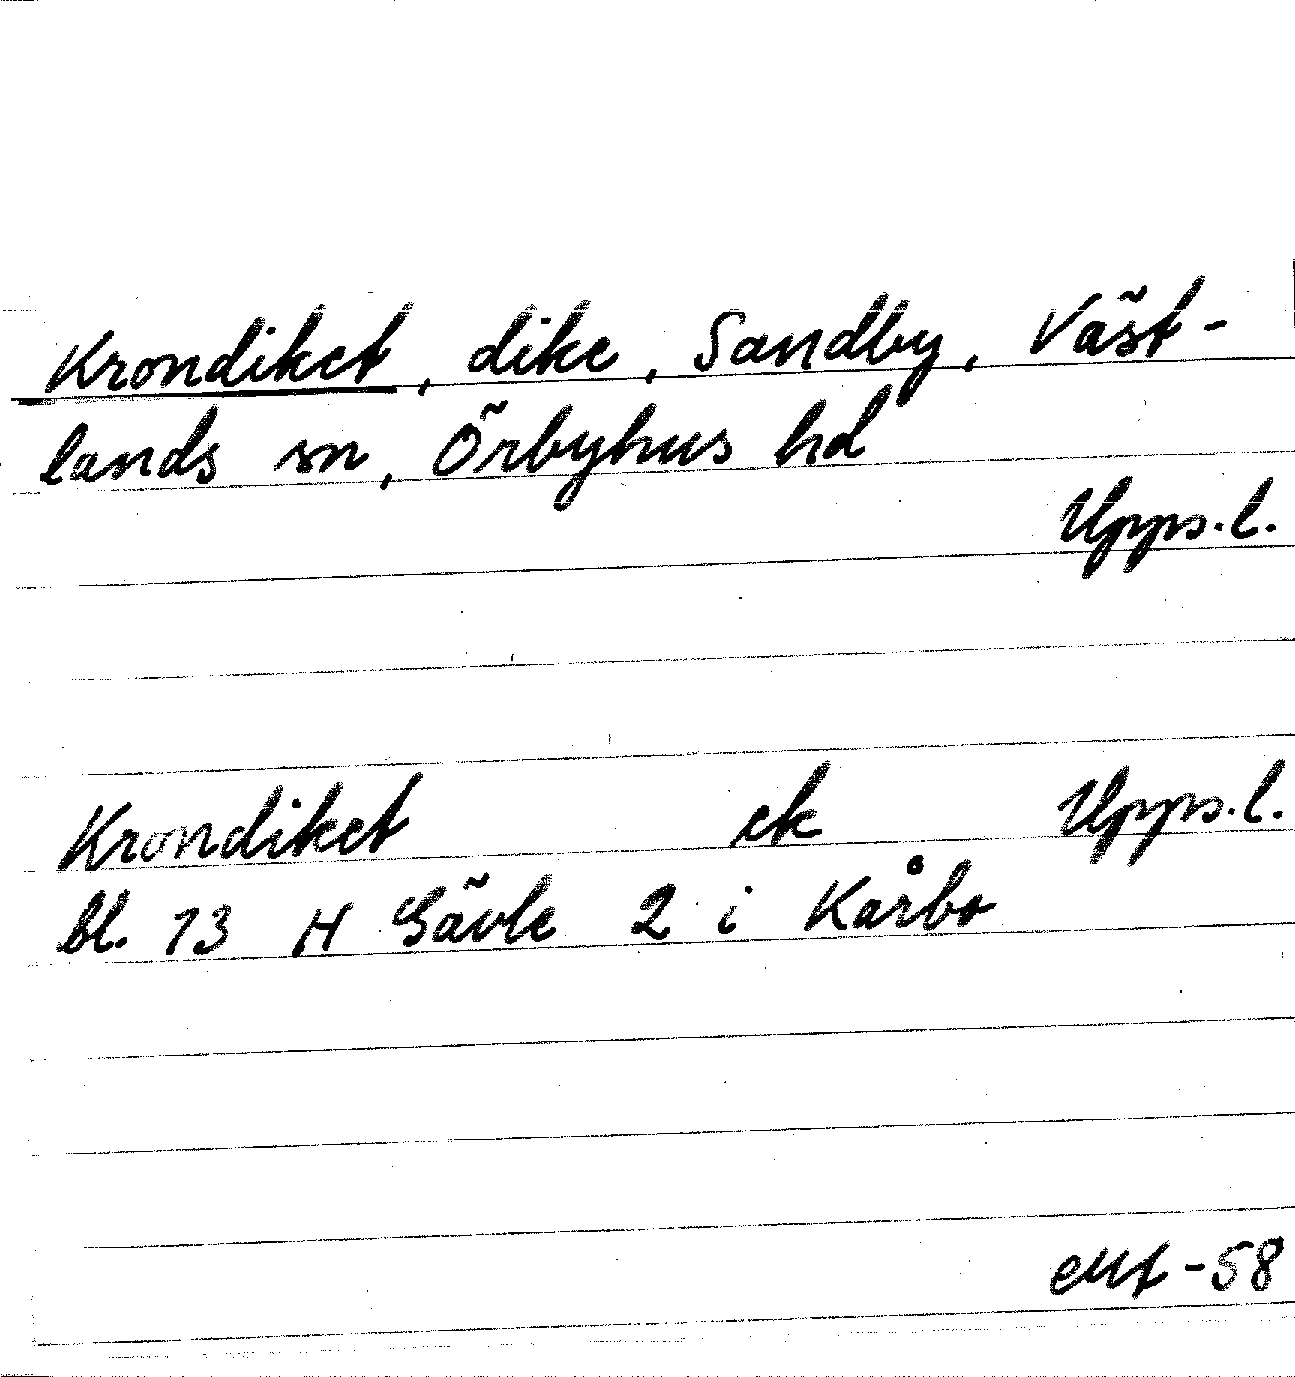 Krondiket, dike, Sandby, Väst-
lands sn, Örbyhus hd
Upps.l.
Krondiket ek Upps.l.
bl. 13 H Gävle 2 i Kårbo
-58